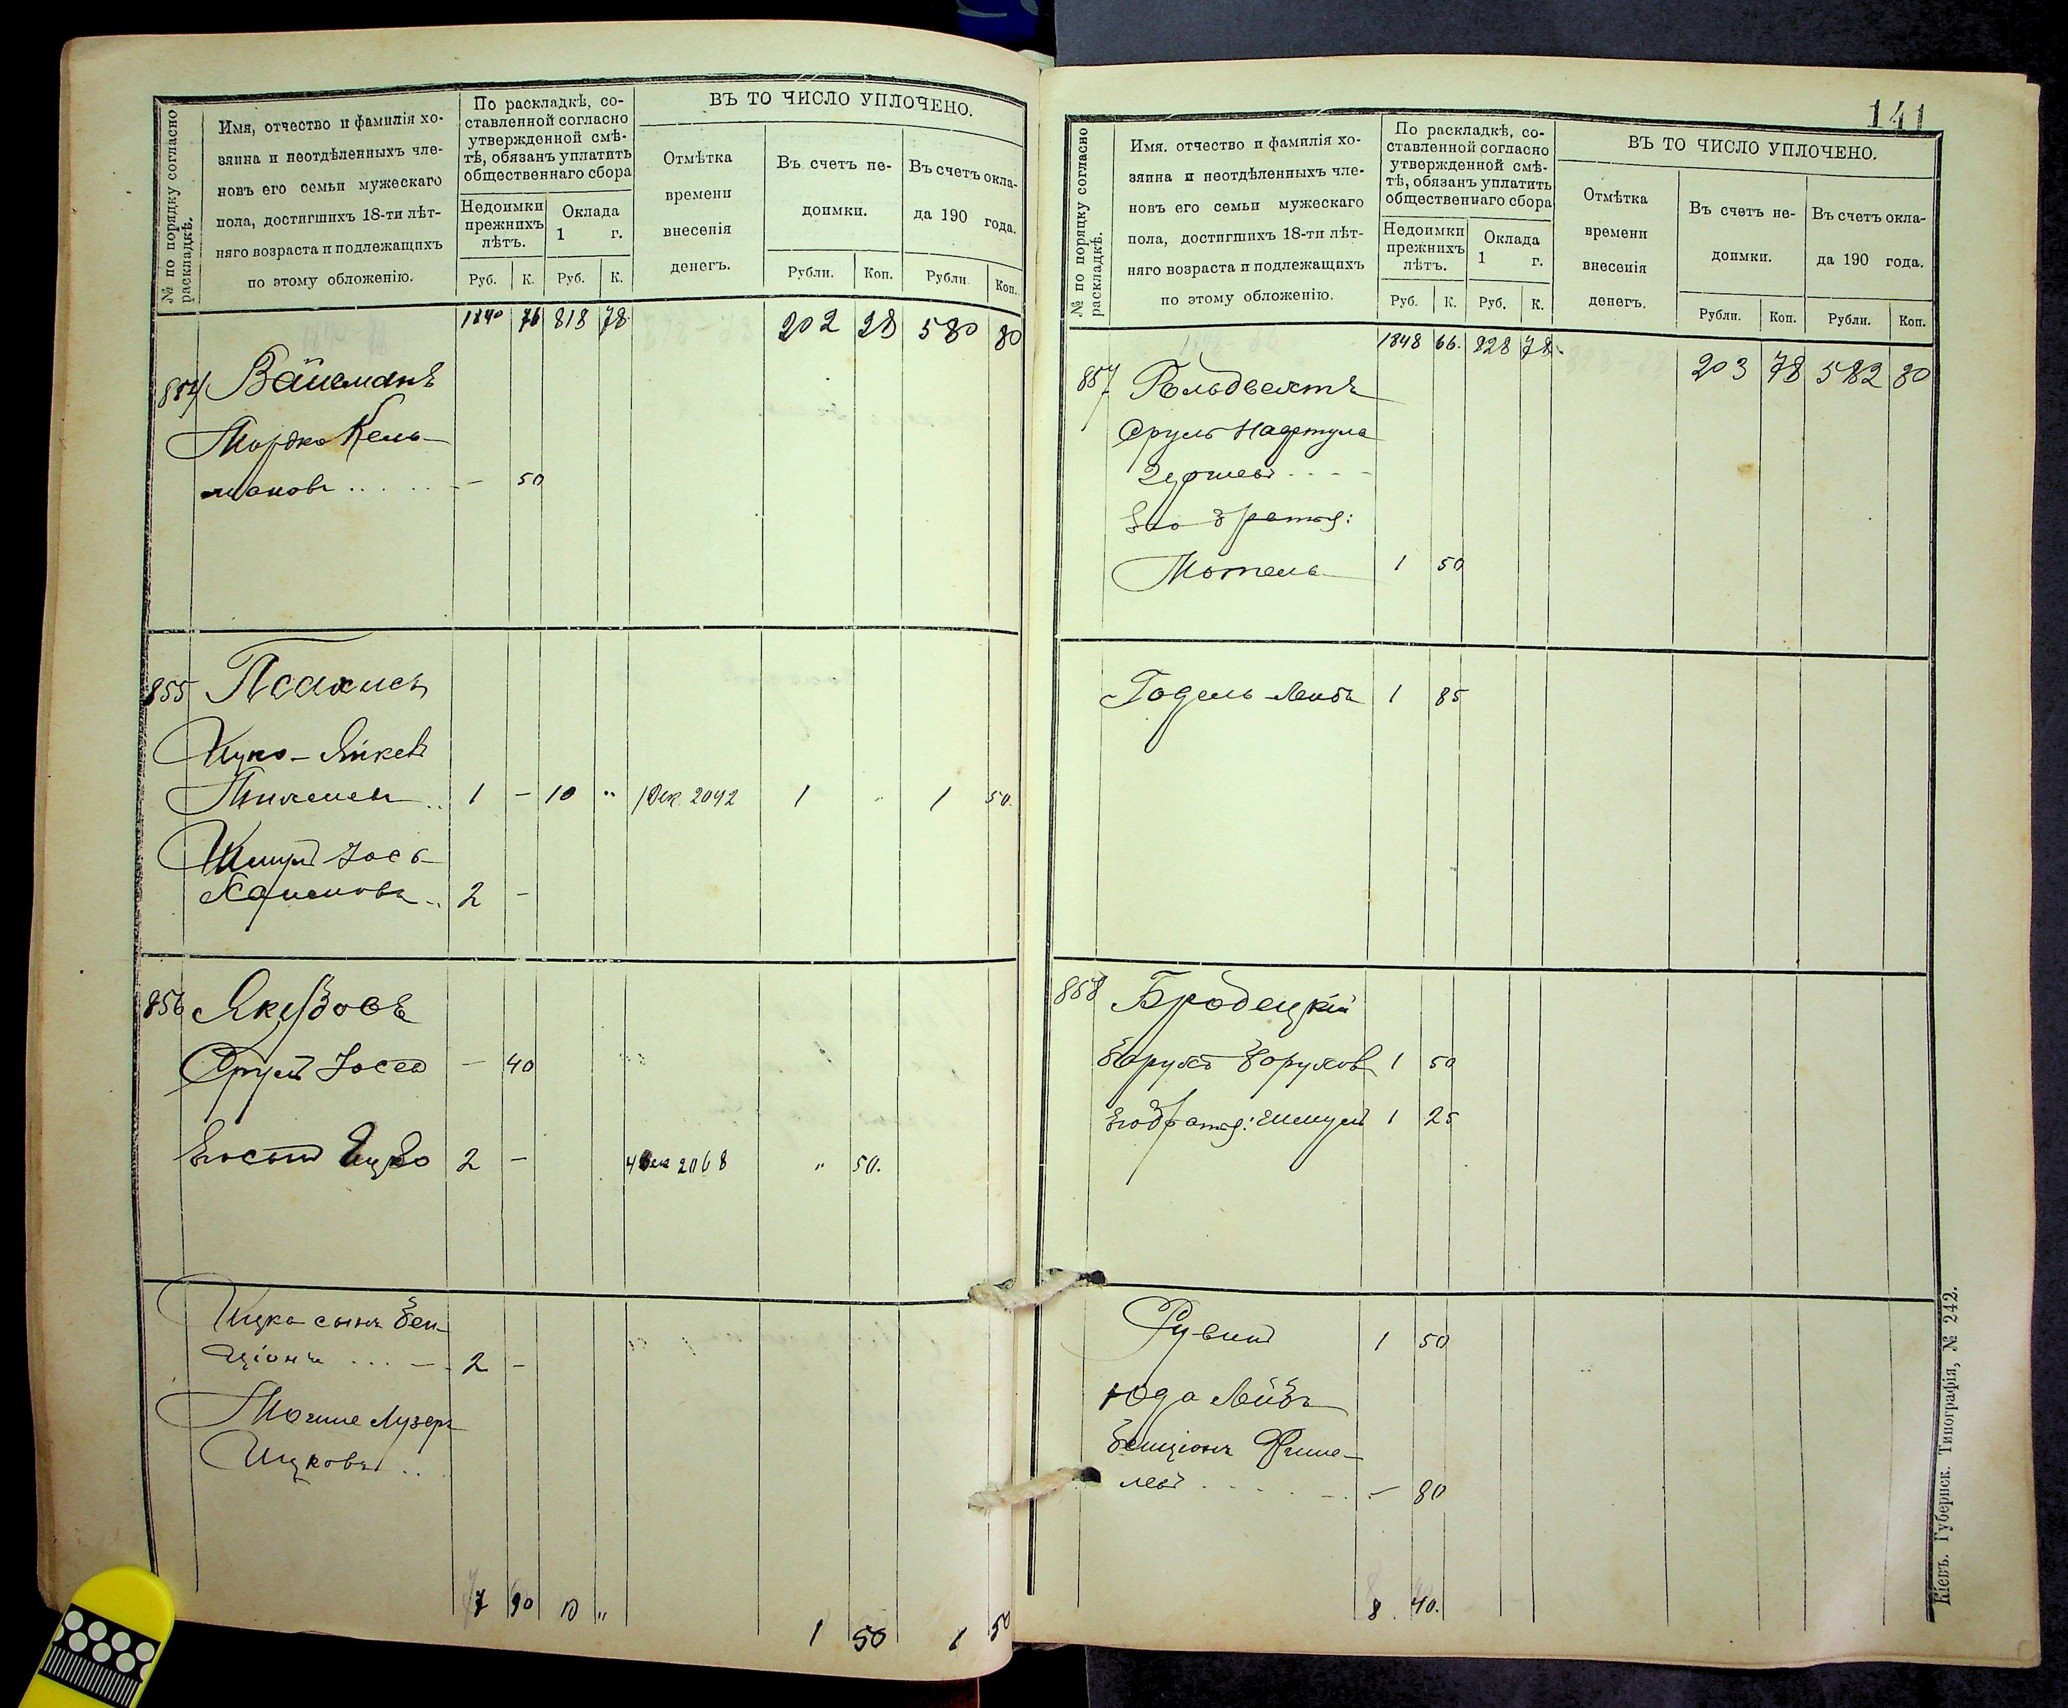 № по порядку согласно раскладкѣ.
Имя, отчество и фамилія хо-
зяина и неотдѣленныхъ чле-
новъ его семьи мужескаго
пола, достигшихъ 18-ти лѣт-
няго возраста и подлежащихъ
по этому обложенію.
По раскладкѣ, со-
ставленной согласно
утвержденной смѣ-
тѣ, обязанъ уплатить
общественнаго сбора
Недоимки
прежнихъ
лѣтъ.
Оклада
1 г.
Руб. К. Руб. К.
ВЪ ТО ЧИСЛО УПЛОЧЕНО.
Отмѣтка
времени
внесенія
денегъ.
Въ счетъ не-
доимки.
Въ счетъ окла-
да 190 года.
Рубли. Коп. Рубли. Коп.
1840 76 818 78 202 28 580 80
854 Вайсманъ
Мордко Кель-
мановъ — 50
855 Псахисъ
Ицко-Янкель
1 — 10 " 1 Дек. 2042 1 " 1 50.
Шмуль Іось
2 —
856 Якубовъ
Сруль Іосев — 40
Ицко 2 — 4 Дек 2068 " 50.
Ицка сынъ Бен-
ціонъ 2 —
Мошше Лузеръ
Ицковъ
7 90 10 " 1 50 1 50
141
№ по порядку согласно раскладкѣ.
Имя, отчество и фамилія хо-
зяина и неотдѣленныхъ чле-
новъ его семьи мужескаго
пола, достигшихъ 18-ти лѣт-
няго возраста и подлежащихъ
по этому обложенію.
По раскладкѣ, со-
ставленной согласно
утвержденной смѣ-
тѣ, обязанъ уплатить
общественнаго сбора
Недоимки
прежнихъ
лѣтъ.
Оклада
1 г.
Руб. К. Руб. К.
ВЪ ТО ЧИСЛО УПЛОЧЕНО.
Отмѣтка
времени
внесенія
денегъ.
Въ счетъ не-
доимки.
Въ счетъ окла-
да 190 года.
Рубли. Коп. Рубли. Коп.
1848 66. 828 78. 203 78 582 80
857 Гольдвехтъ
Сруль Нафтула
Его братья:
Мотель 1 50
Годель-Лейбъ 1 85
858 Бродецкій
Борухъ Борухов 1 50
Его братья: Шмуль 1 25
Рувинъ 1 50
Юда Лейбъ
Бенціонъ Фише-
левъ — 80
8. 40.
Кіевъ. Губернск. Типографія, № 242.